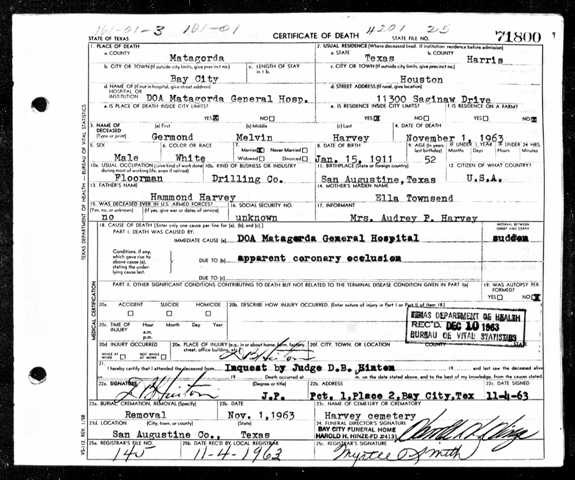 161-01-3 101-01 4201 25
STATE OF TEXAS CERTIFICATE OF DEATH STATE FILE NO. 71800
1. PLACE OF DEATH 2. USUAL RESIDENCE (Where deceased lived. If institution: residence before admission)
a. COUNTY a. STATE b. COUNTY
Matagorda Texas Harris
b. CITY OR TOWN (If outside city limits, give precinct no.) c. LENGTH OF STAY in 1 b. c. CITY OR TOWN (If outside city limits, give precinct no.)
Bay City Houston
d. NAME OF (If not in hospital, give street address) HOSPITAL OR INSTITUTION d. STREET ADDRESS (If rural, give location)
DOA Matagorda General Hosp. 11300 Saginaw Drive
e. IS PLACE OF DEATH INSIDE CITY LIMITS? e. IS RESIDENCE INSIDE CITY LIMITS? f. IS RESIDENCE ON A FARM?
YES X NO YES X NO YES NO X
3. NAME OF DECEASED (Type or print) (a) First (b) Middle (c) Last 4. DATE OF DEATH
Germond Melvin Harvey November 1, 1963
5. SEX 6. COLOR OR RACE 7. Married X Never Married Widowed Divorced 8. DATE OF BIRTH 9. AGE (In years last birthday) IF UNDER 1 YEAR Months Days IF UNDER 24 HRS. Hours Min.
Male White Jan. 15, 1911 52
10a. USUAL OCCUPATION (Give kind of work done during most of working life, even if retired) 10b. KIND OF BUSINESS OR INDUSTRY 11. BIRTHPLACE (State or foreign country) 12. CITIZEN OF WHAT COUNTRY?
Floorman Drilling Co. San Augustine, Texas U.S.A.
13. FATHER'S NAME 14. MOTHER'S MAIDEN NAME
Hammond Harvey Ella Townsend
15. WAS DECEASED EVER IN U.S. ARMED FORCES? 16. SOCIAL SECURITY NO. 17. INFORMANT
no unknown Mrs. Audrey P. Harvey
18. CAUSE OF DEATH [Enter only one cause per line for (a), (b), and (c).] INTERVAL BETWEEN ONSET AND DEATH
PART I. DEATH WAS CAUSED BY:
IMMEDIATE CAUSE (a) DOA Matagorda General Hospital sudden
Conditions, if any, which gave rise to above cause (a), stating the underlying cause last. DUE TO (b) apparent coronary occlusion
DUE TO (c)
PART II. OTHER SIGNIFICANT CONDITIONS CONTRIBUTING TO DEATH BUT NOT RELATED TO THE TERMINAL DISEASE CONDITION GIVEN IN PART I(a) 19. WAS AUTOPSY PERFORMED?
YES NO X
20a. ACCIDENT SUICIDE HOMICIDE 20b. DESCRIBE HOW INJURY OCCURRED. (Enter nature of injury in Part I or Part II of item 18)
TEXAS DEPARTMENT OF HEALTH
REC'D DEC 10 1963
BUREAU OF VITAL STATISTICS
20c. TIME OF INJURY Hour Month Day Year a.m. p.m.
20d. INJURY OCCURRED WHILE AT WORK NOT WHILE AT WORK 20e. PLACE OF INJURY (e.g., in or about home, farm, factory, street, office building, etc.) 20f. CITY, TOWN, OR LOCATION COUNTY STATE
21. I hereby certify that I attended the deceased from Inquest by Judge D.B. Hinton 19 and last saw the deceased alive
on 19 Death occurred at m. on the date stated above, and to the best of my knowledge, from the causes stated.
22a. SIGNATURE (Degree or title) 22b. ADDRESS 22c. DATE SIGNED
J.P. Pct. 1, Place 2, Bay City, Tex 11-4-63
23a. BURIAL, CREMATION, REMOVAL (Specify) 23b. DATE 23c. NAME OF CEMETERY OR CREMATORY
Removal Nov. 1, 1963 Harvey cemetery
23d. LOCATION (City, town, or county) (State) 24. FUNERAL DIRECTOR'S SIGNATURE
San Augustine Co., Texas BAY CITY FUNERAL HOME
HAROLD H. HINZE-FD #4131
25a. REGISTRAR'S FILE NO. 25b. DATE REC'D BY LOCAL REGISTRAR 25c. REGISTRAR'S SIGNATURE
145 11-4-1963 Myrtle Smith
TEXAS DEPARTMENT OF HEALTH - BUREAU OF VITAL STATISTICS
MEDICAL CERTIFICATION